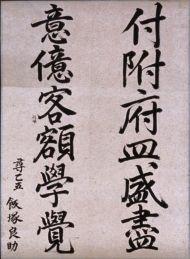 付附府皿盛盡
意億客額學覺
尋乙五 飯塚良助